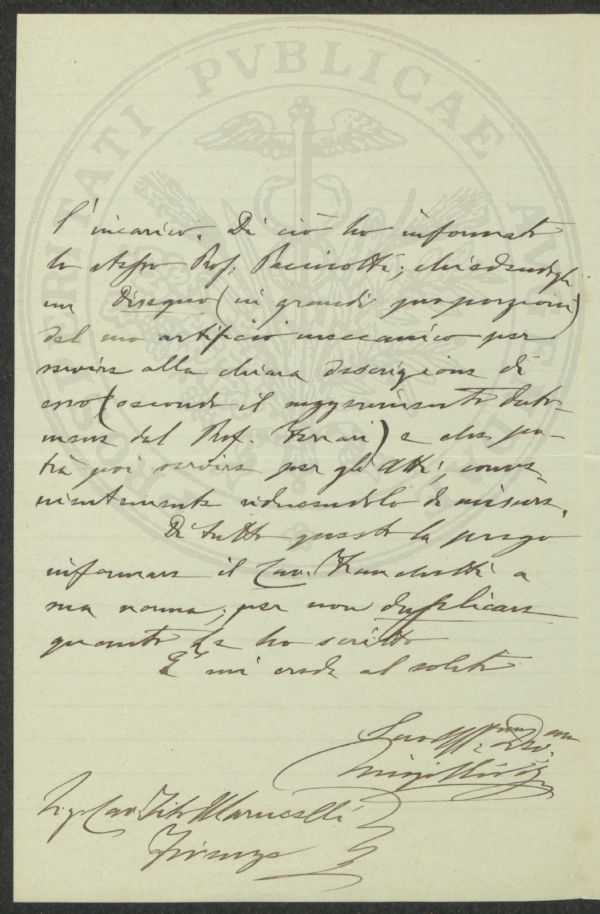 PROSPERITATI PVBLICAE AVGENDAE
l'incarico. Di ciò ho informato
lo stesso Prof. Pacinotti, chiedendogli
un disegno (in grandi proporzioni)
del suo artificio meccanico per
servire alla chiara descrizione di
esso (secondo il suggerimento
del Prof. Ferrari) e che po-
trà poi servire per gli Atti, conve-
nientemente riducendolo di misura.
Di tutto questo la prego
informare il Cav. Franchetti a
sua norma, per non duplicare
quanto Le ho scritto
E mi creda al solito
Suo
Luigi
Sigr Cav. Tito Marucelli
Firenze